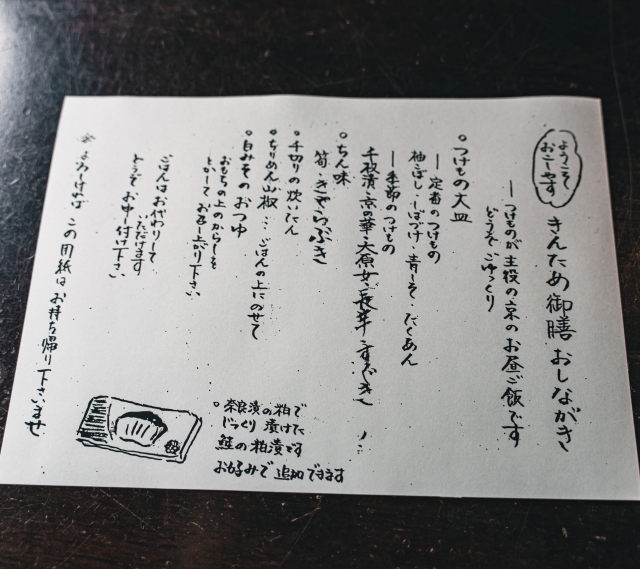 ようこそ
おこしやす
きんため御膳 おしながき
―つけものが主役の京のお昼ご飯です
どうぞ ごゆっくり
○つけもの大皿
―定番のつけもの
柚こぼし・しばづけ・青しそ・たくあん
―季節のつけもの
千枚漬・京の華・大原女・長芋・すぐき
○ちん味
筍・きゃらぶき
○千切りの炊いたん
○ちりめん山椒…ごはんの上にのせて
○白みそのおつゆ
おもちの上のからしを
とかして お召し上り下さい
ごはんはお代わりして
いただけます
どうぞ お申し付け下さい
○奈良漬の粕で
じっくり 漬けた
鮭の粕漬です
お好みで 追加できます
※よろしければ この用紙はお持ち帰り下さいませ